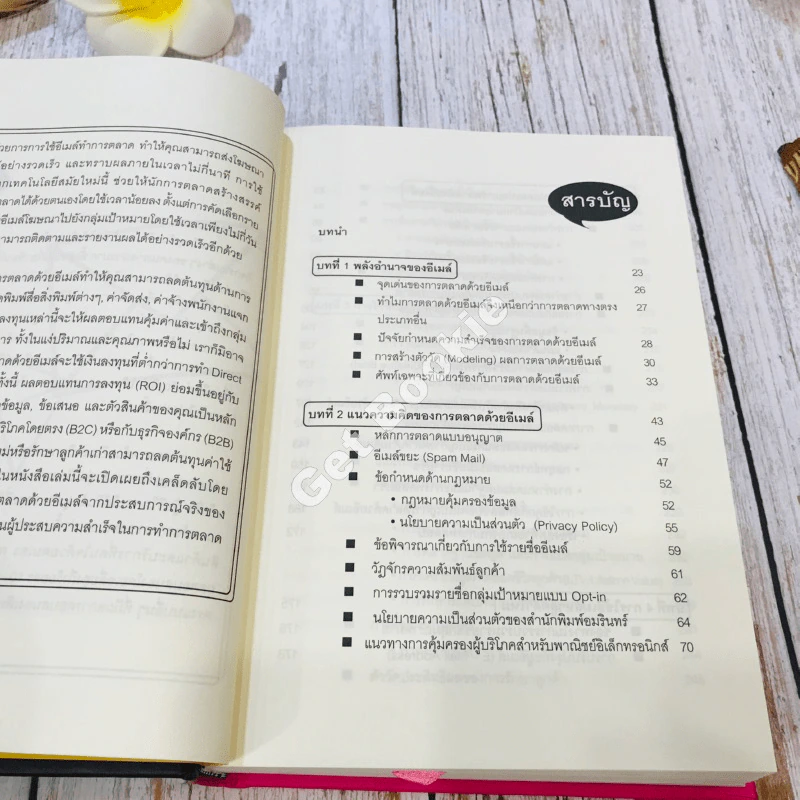 ด้วยการการใช้อีเมล์ทำการตลาด ทำให้คุณสามารถส่งโฆษณา
อย่างรวดเร็ว และทราบผลภายในเวลาไม่กี่นาที การใช้
เทคโนโลยีสมัยใหม่นี้ ช่วยให้นักการตลาดสร้างสรรค์
ตลาดได้ด้วยตนเองโดยใช้เวลาน้อยลง ตั้งแต่การคัดเลือกราย
อีเมล์โฆษณาไปยังกลุ่มเป้าหมายโดยใช้เวลาเพียงไม่กี่วัน
สามารถติดตามและรายงานผลได้อย่างรวดเร็วอีกด้วย
การตลาดด้วยอีเมล์ทำให้คุณสามารถลดต้นทุนด้านการ
พิมพ์สื่อสิ่งพิมพ์ต่างๆ, ค่าจัดส่ง, ค่าจ้างพนักงานแจก
ลงทุนเหล่านี้จะให้ผลตอบแทนคุ้มค่าและเข้าถึงกลุ่ม
การ ทั้งในแง่ปริมาณและคุณภาพหรือไม่ เราก็มีอาจ
ตลาดด้วยอีเมล์จะใช้เงินลงทุนที่ต่ำกว่าการทำ Direct
ทั้งนี้ ผลตอบแทนการลงทุน (ROI) ย่อมขึ้นอยู่กับ
ข้อมูล, ข้อเสนอ และตัวสินค้าของคุณเป็นหลัก
บริโภคโดยตรง (B2C) หรือกับธุรกิจองค์กร (B2B)
ใหม่หรือรักษาลูกค้าเก่าสามารถลดต้นทุนค่าใช้
ในหนังสือเล่มนี้จะเปิดเผยถึงเคล็ดลับโดย
ตลาดด้วยอีเมล์จากประสบการณ์จริงของ
ผู้ประสบความสำเร็จในการทำการตลาด
สารบัญ
บทนำ
บทที่ 1 พลังอำนาจของอีเมล์ 23
■ จุดเด่นของการตลาดด้วยอีเมล์ 26
■ ทำไมการตลาดด้วยอีเมล์จึงเหนือกว่าการตลาดทางตรง 27
ประเภทอื่น
■ ปัจจัยกำหนดความสำเร็จของการตลาดด้วยอีเมล์ 28
■ การสร้างตัววัด (Modeling) ผลการตลาดด้วยอีเมล์ 30
■ ศัพท์เฉพาะที่เกี่ยวข้องกับการตลาดด้วยอีเมล์ 33
บทที่ 2 แนวความคิดของการตลาดด้วยอีเมล์ 43
■ หลักการตลาดแบบอนุญาต 45
■ อีเมล์ขยะ (Spam Mail) 47
■ ข้อกำหนดด้านกฎหมาย 52
• กฎหมายคุ้มครองข้อมูล 52
• นโยบายความเป็นส่วนตัว (Privacy Policy) 55
■ ข้อพิจารณาเกี่ยวกับการใช้รายชื่ออีเมล์ 59
■ วัฏจักรความสัมพันธ์ลูกค้า 61
■ การรวบรวมรายชื่อกลุ่มเป้าหมายแบบ Opt-in 62
■ นโยบายความเป็นส่วนตัวของสำนักพิมพ์อมรินทร์ 64
■ แนวทางการคุ้มครองผู้บริโภคสำหรับพาณิชย์อิเล็กทรอนิกส์ 70
Get Bookie